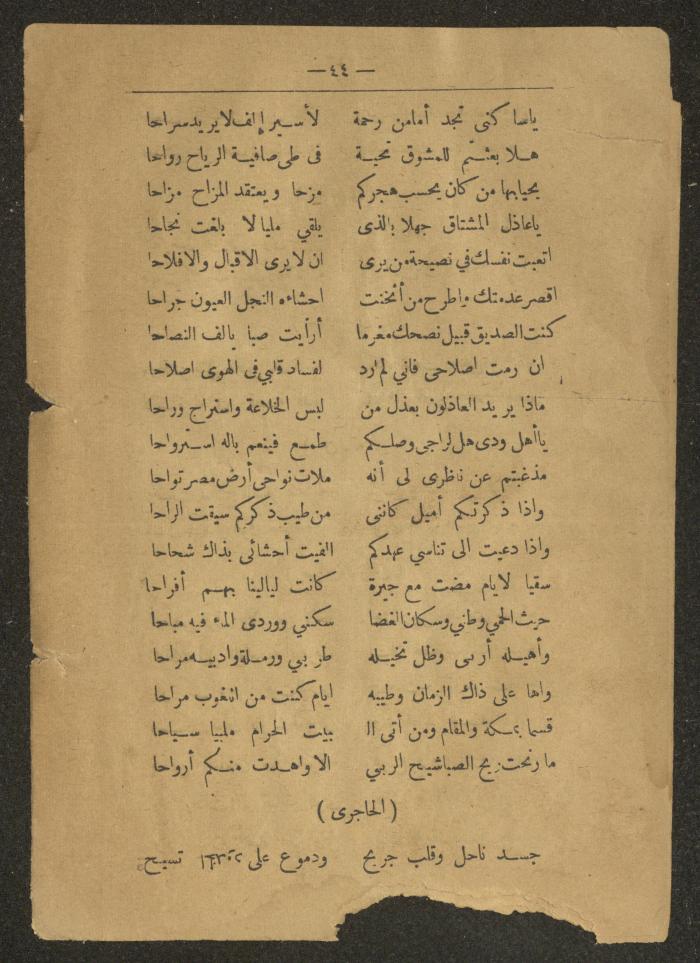 — ٤٤ —
ياسا كنى نجد أمامن رحمة لأسير إلف لا يريد سراحا
هلا بعثتم للمشوق تحية فى طى صافية الرياح رواحا
يحيابها من كان يحسب هجركم مزحا ويعتقد المزاح مزاحا
ياعاذل المشتاق جهلا بالذى يلقي مليا لا بلغت نجاحا
اتعبت نفسك في نصيحة من يرى ان لايرى الاقبال والافلاحا
اقصر عدمتك واطرح من أثخنت احشاءه النجل العيون جراحا
كنت الصديق قبيل نصحك مغرما أرأيت صبا يالف النصاحا
ان رمت اصلاحى فاني لم ارد لفساد قلبي فى الهوى اصلاحا
ماذا يريد العاذلون بعذل من لبس الخلاعة واستراح وراحا
ياأهل ودى هل لراجى وصلكم طمع فينعم باله استرواحا
مذغبتم عن ناظرى لى أنه ملات نواحى أرض مصر نواحا
واذا ذكرتكم أميل كاننى من طيب ذكركم سقيت الراحا
واذا دعيت الى تناسي عهدكم الفيت أحشائى بذاك شحاحا
سقيا لايام مضت مع جيرة كانت ليالينا بهم أفراحا
حيث الحمي وطني وسكان الغضا سكنني ووردى الماء فيه مباحا
وأهيله أربى وظل نخيله طربي ورملة واديبه مراحا
واها على ذاك الزمان وطيبه ايام كنت من اللغوب مراحا
قسما بمكة والمقام ومن أتى الـ بيت الحرام ملبيا سياحا
مارنحت ريح الصباشيح الربي الا واهدت منكم أرواحا
( الحاجرى )
جسد ناحل وقلب جريح ودموع على تسيح